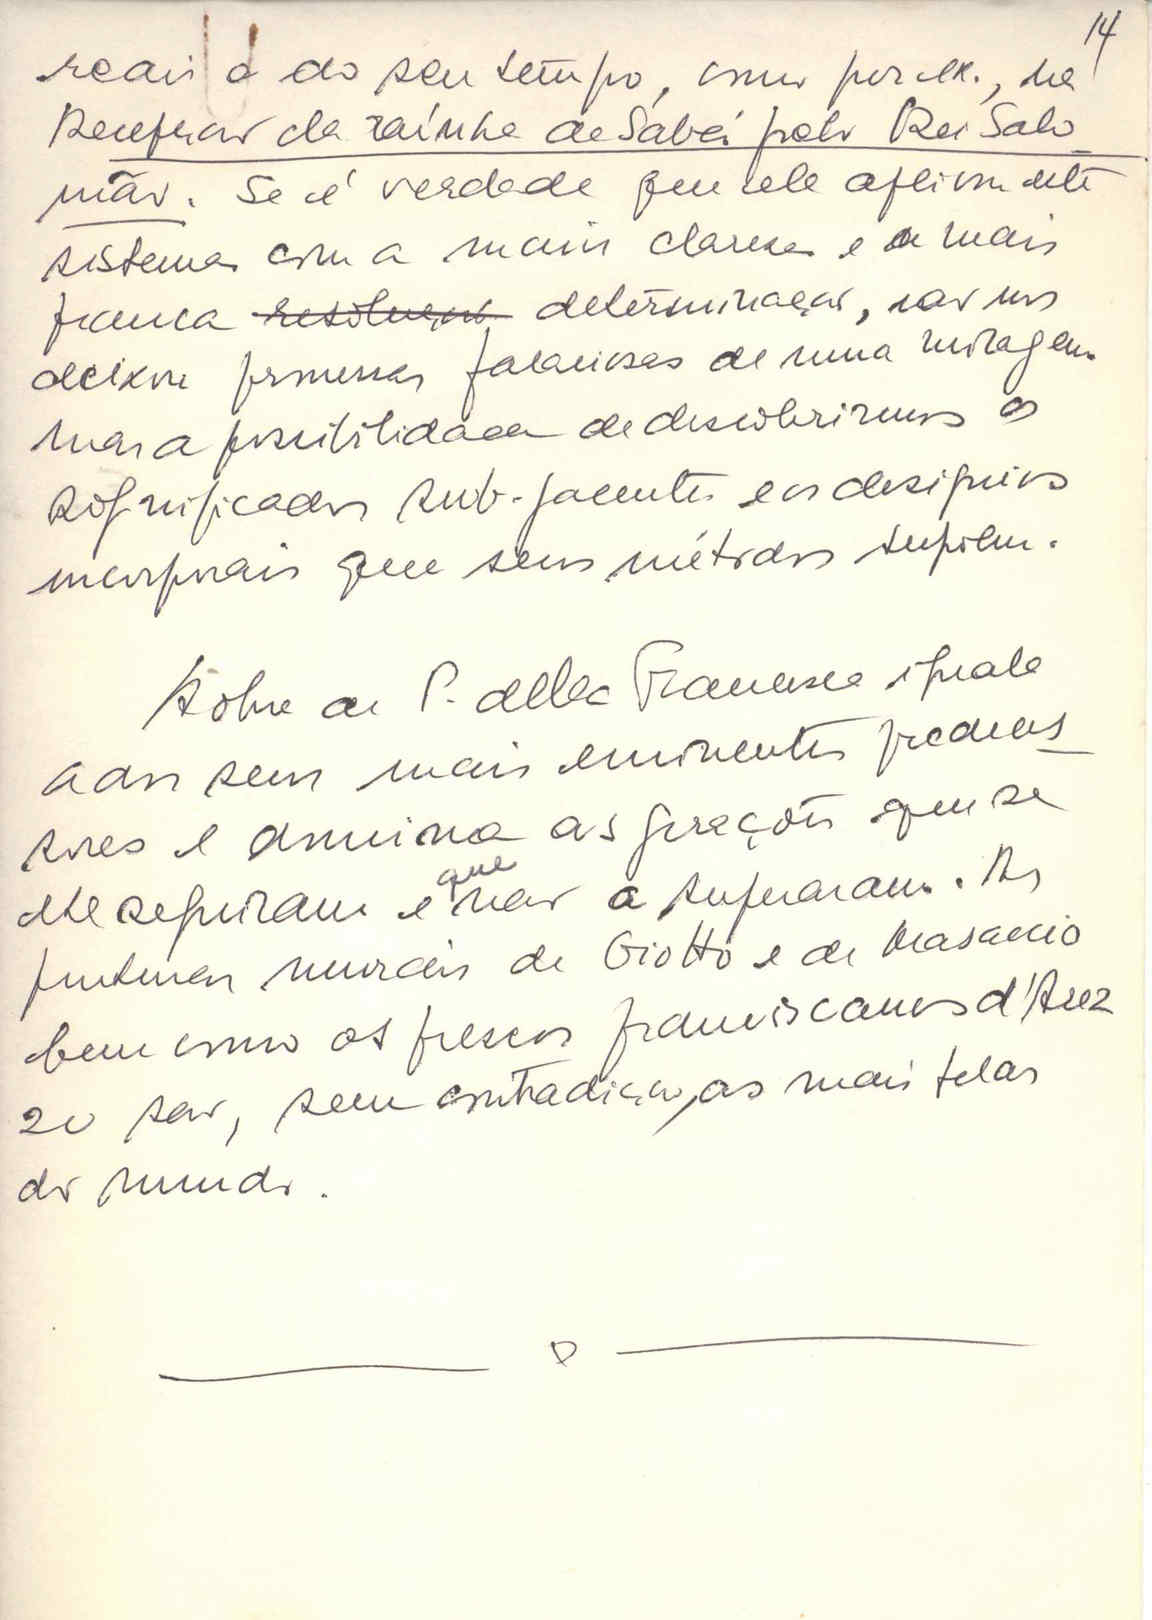 14
reais a do seu tempo, como por ex., na
Recepção da rainha de Sabá pelo Rei Salo
mão. Se é verdade que ele aplicou este
sistema com a mais clareza e a mais
franca resolução determinação, não nos
deixou promessas falaciosas de uma miragem
mas a possibilidade de descobrirmos os
significados sub-jacentes e os desígnios
incorporais que seus métodos supõem.
A obra de P. della Francesca iguala
a dos seus mais eminentes predeces
sores e domina as gerações que se
lhe seguiram e que não a superaram. As
pinturas murais de Giotto e de Masaccio
bem como os frescos franciscanos d'Arez
zo são, sem contradição, as mais belas
do mundo.